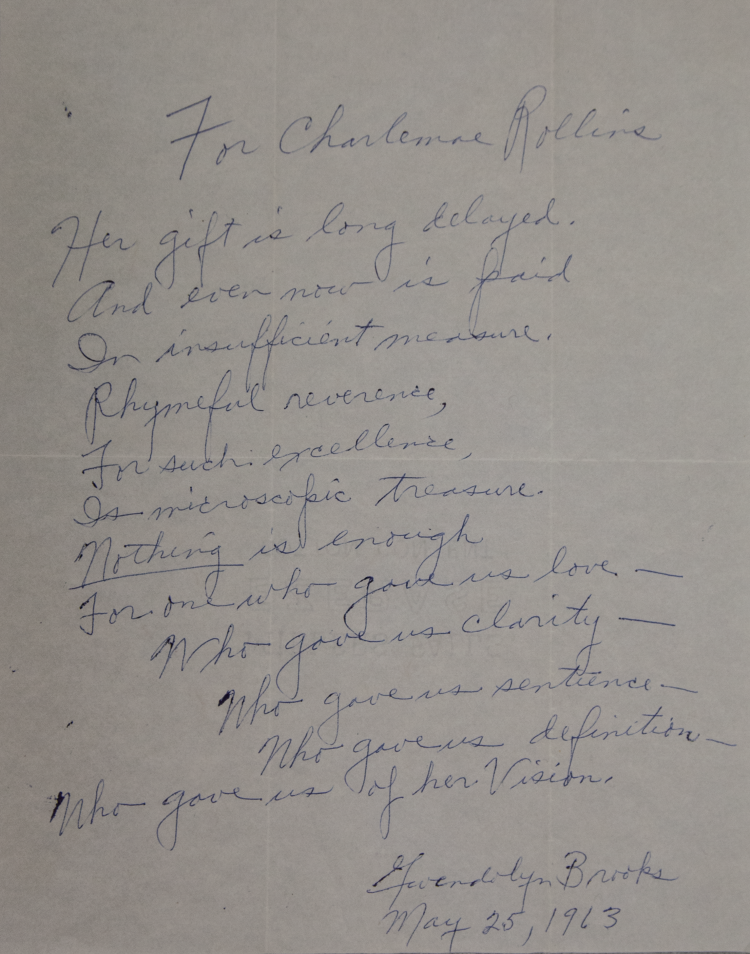 For Charlemae Rollins
Her gift is long delayed.
And even now is paid
In insufficient measure.
Rhymeful reverence,
For such excellence,
Is microscopic treasure.
Nothing is enough
For one who gave us love —
Who gave us clarity —
Who gave us sentience —
Who gave us definition —
Who gave us of her Vision.
Gwendolyn Brooks
May 25, 1963